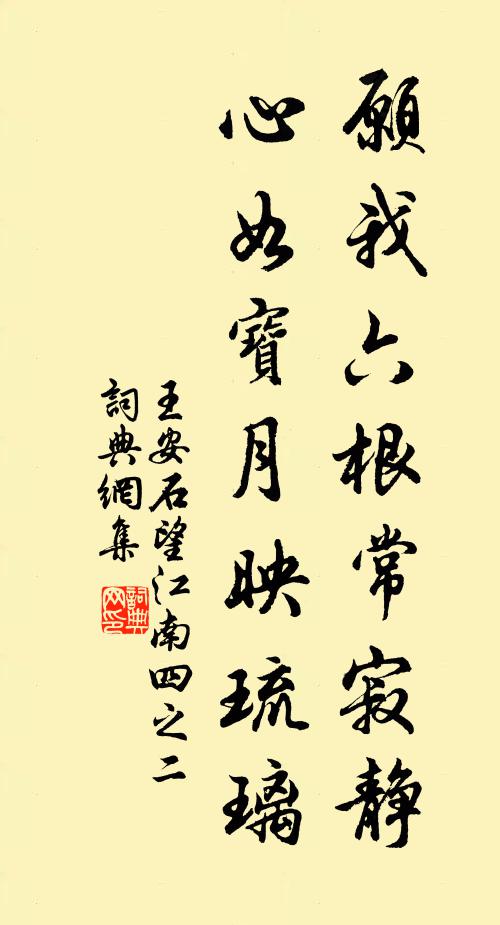 願我六根常寂静
心如寶月映琉璃
王安石望江南四之二
詞典網集
詞典網印